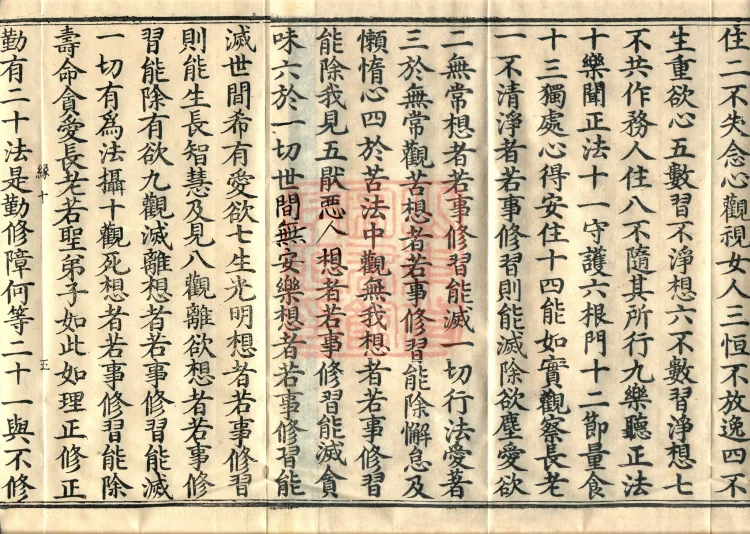 住二不失念心觀視女人三恒不放逸四不
生重欲心五數習不淨想六不數習淨想七
不共作務人住八不隨其所行九樂聽正法
十樂聞正法十一守護六根門十二節量食
十三獨處心得安住十四能如實觀察長老
一不清淨者若事修習則能滅除欲塵愛欲
二無常想者若事修習能滅一切行法愛著
三於無常觀苦想者若事修習能除懈怠及
懶惰心四於苦法中觀無我想者若事修習
能除我見五猒惡人想者若事修習能滅貪
味六於一切世間無安樂想者若事修習能
滅世間希有愛欲七生光明想者若事修習
則能生長智慧及見八觀離欲想者若事修
習能除有欲九觀滅離想者若事修習能滅
一切有爲法攝十觀死想者若事修習能除
壽命貪愛長老若聖弟子如此如理正修正
緣十 五
勤有二十法是勤修障何等二十一與不修